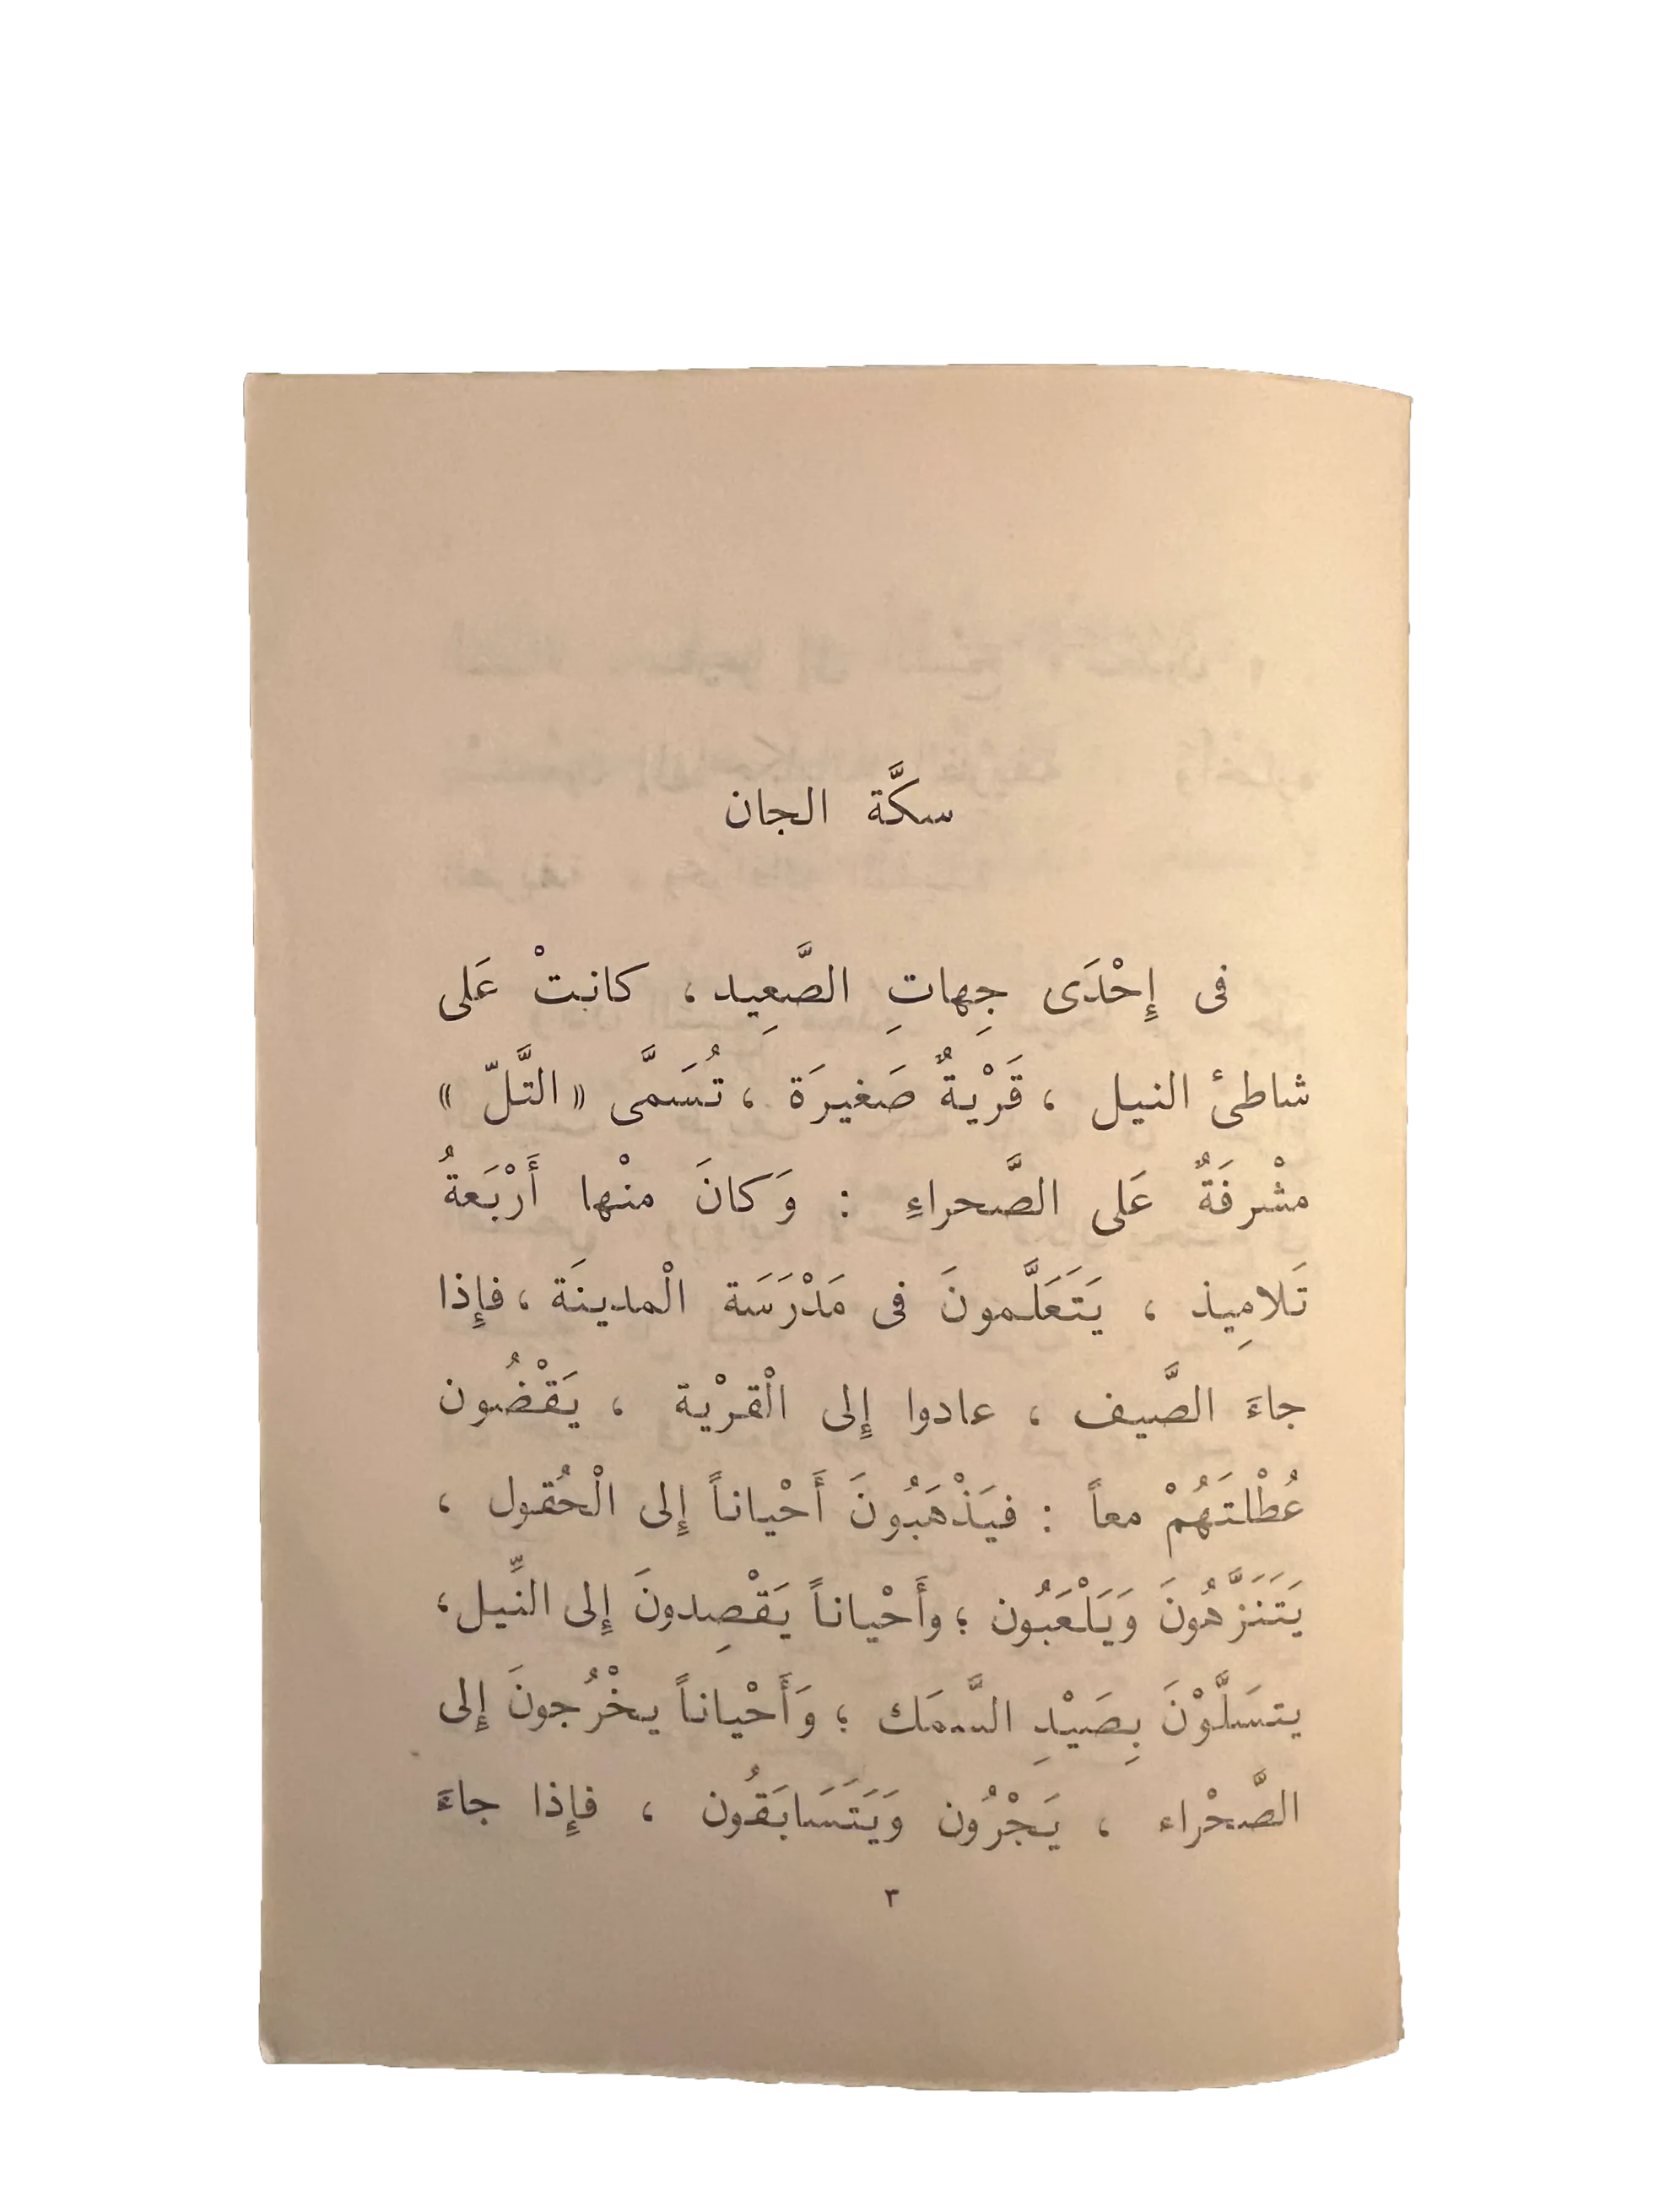 سكَّة الجان
فى إِحْدَى جِهاتِ الصَّعِيد ، كانتْ عَلى
شاطئ النيل ، قَرْيةٌ صَغيرَة ، تُسَمَّى « التَّلّ »
مشْرفَةٌ عَلى الصَّحراءِ : وَكانَ منْها أَرْبَعةُ
تَلامِيذ ، يَتَعَلَّمونَ فى مَدْرَسَة الْمدينَة ، فإِذا
جاءَ الصَّيف ، عادوا إِلى الْقرْية ، يَقْضُون
عُطْلتَهُمْ معاً : فيَذْهَبُونَ أَحْياناً إِلى الْحُقول ،
يَتَنَزَّهُونَ وَيَلْعَبُون ؛ وأَحْياناً يَقْصِدونَ إِلى النِّيل ،
يتسَلَّوْنَ بِصَيْدِ السَّمَك ؛ وَأَحْياناً يخْرُجونَ إِلى
الصَّحْراء ، يَجْرُون وَيَتَسَابَقُون ، فإِذا جاءَ
٣